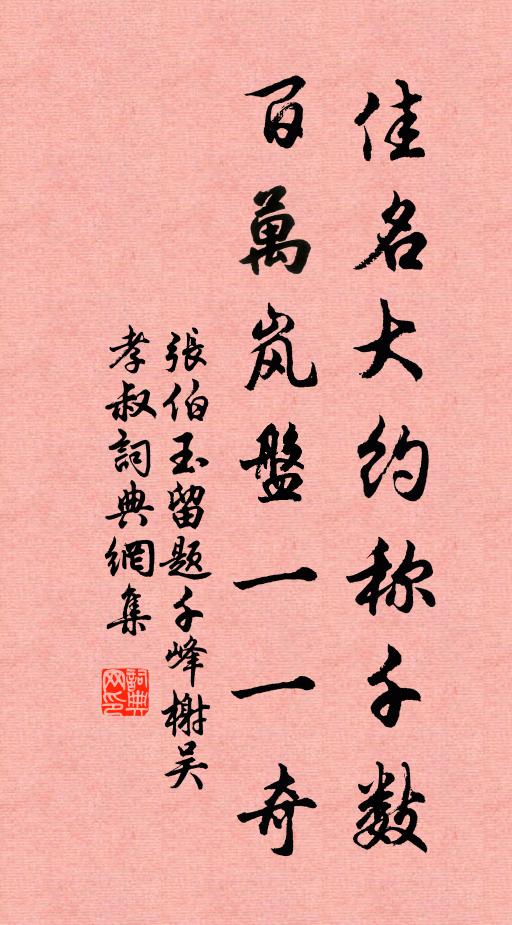 佳名大约称千数
百萬岚盤一一奇
張伯玉留题千峰榭吴
孝叔詞典網集
詞典网印